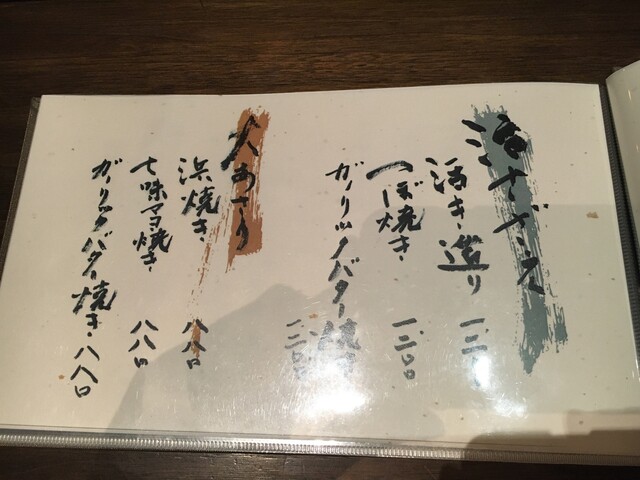 活さざえ
活き造り
つぼ焼き 一、三〇〇
ガーリックバター焼き 一、三〇〇
大あさり
浜焼き 八八〇
七味マヨ焼き 八八〇
ガーリックバター焼き 八八〇